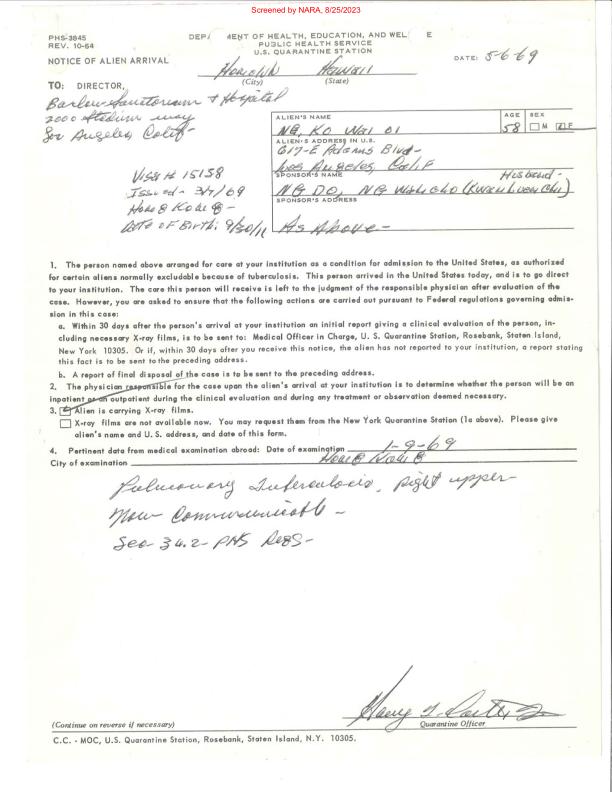 Screened by NARA, 8/25/2023
PHS-3845
REV. 10-64
DEPA MENT OF HEALTH, EDUCATION, AND WEL E
PUBLIC HEALTH SERVICE
U.S. QUARANTINE STATION
NOTICE OF ALIEN ARRIVAL
DATE: 5-6-69
Honolulu Hawaii
(City) (State)
TO: DIRECTOR,
Barlow Sanitorium & Hospital
2000 Stadium way
Los Angeles, Calif-
ALIEN'S NAME
NG, KO WAI
AGE SEX
58 M F
ALIEN'S ADDRESS IN U.S.
617-E Adams Blvd-
Los Angeles, Calif
SPONSOR'S NAME Husband-
NG DO, NG
SPONSOR'S ADDRESS
As Above-
Visa # 15158
Issued- 3/7/69
Hong Kong-
Date of Birth: 9/30/11
1. The person named above arranged for care at your institution as a condition for admission to the United States, as authorized
for certain aliens normally excludable because of tuberculosis. This person arrived in the United States today, and is to go direct
to your institution. The care this person will receive is left to the judgment of the responsible physician after evaluation of the
case. However, you are asked to ensure that the following actions are carried out pursuant to Federal regulations governing admis-
sion in this case:
a. Within 30 days after the person's arrival at your institution an initial report giving a clinical evaluation of the person, in-
cluding necessary X-ray films, is to be sent to: Medical Officer in Charge, U. S. Quarantine Station, Rosebank, Staten Island,
New York 10305. Or if, within 30 days after you receive this notice, the alien has not reported to your institution, a report stating
this fact is to be sent to the preceding address.
b. A report of final disposal of the case is to be sent to the preceding address.
2. The physician responsible for the case upon the alien's arrival at your institution is to determine whether the person will be an
inpatient or an outpatient during the clinical evaluation and during any treatment or observation deemed necessary.
3. Alien is carrying X-ray films.
X-ray films are not available now. You may request them from the New York Quarantine Station (1a above). Please give
alien's name and U.S. address, and date of this form.
4. Pertinent data from medical examination abroad: Date of examination 1-9-69
City of examination Hong Kong
Pulmonary Tuberculosis, Right upper-
Non Communicable-
Sec- 34.2- PHS Regs-
(Continue on reverse if necessary)
Quarantine Officer
C.C. - MOC, U.S. Quarantine Station, Rosebank, Staten Island, N.Y. 10305.